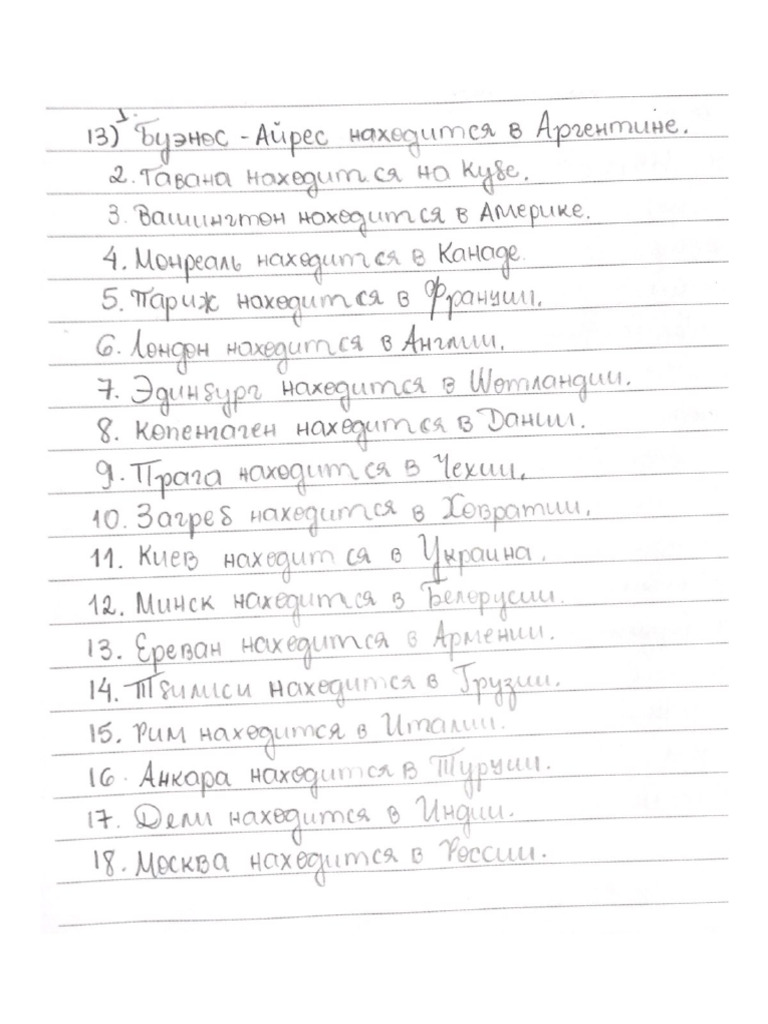 13) 1. Буэнос-Айрес находится в Аргентине.
2. Гавана находится на Кубе.
3. Вашингтон находится в Америке.
4. Монреаль находится в Канаде.
5. Париж находится в Франции.
6. Лондон находится в Англии.
7. Эдинбург находится в Шотландии.
8. Копенгаген находится в Дании.
9. Прага находится в Чехии.
10. Загреб находится в Ховратии.
11. Киев находится в Украина.
12. Минск находится в Белорусии.
13. Ереван находится в Армении.
14. Тбилиси находится в Грузии.
15. Рим находится в Италии.
16. Анкара находится в Турции.
17. Дели находится в Индии.
18. Москва находится в России.